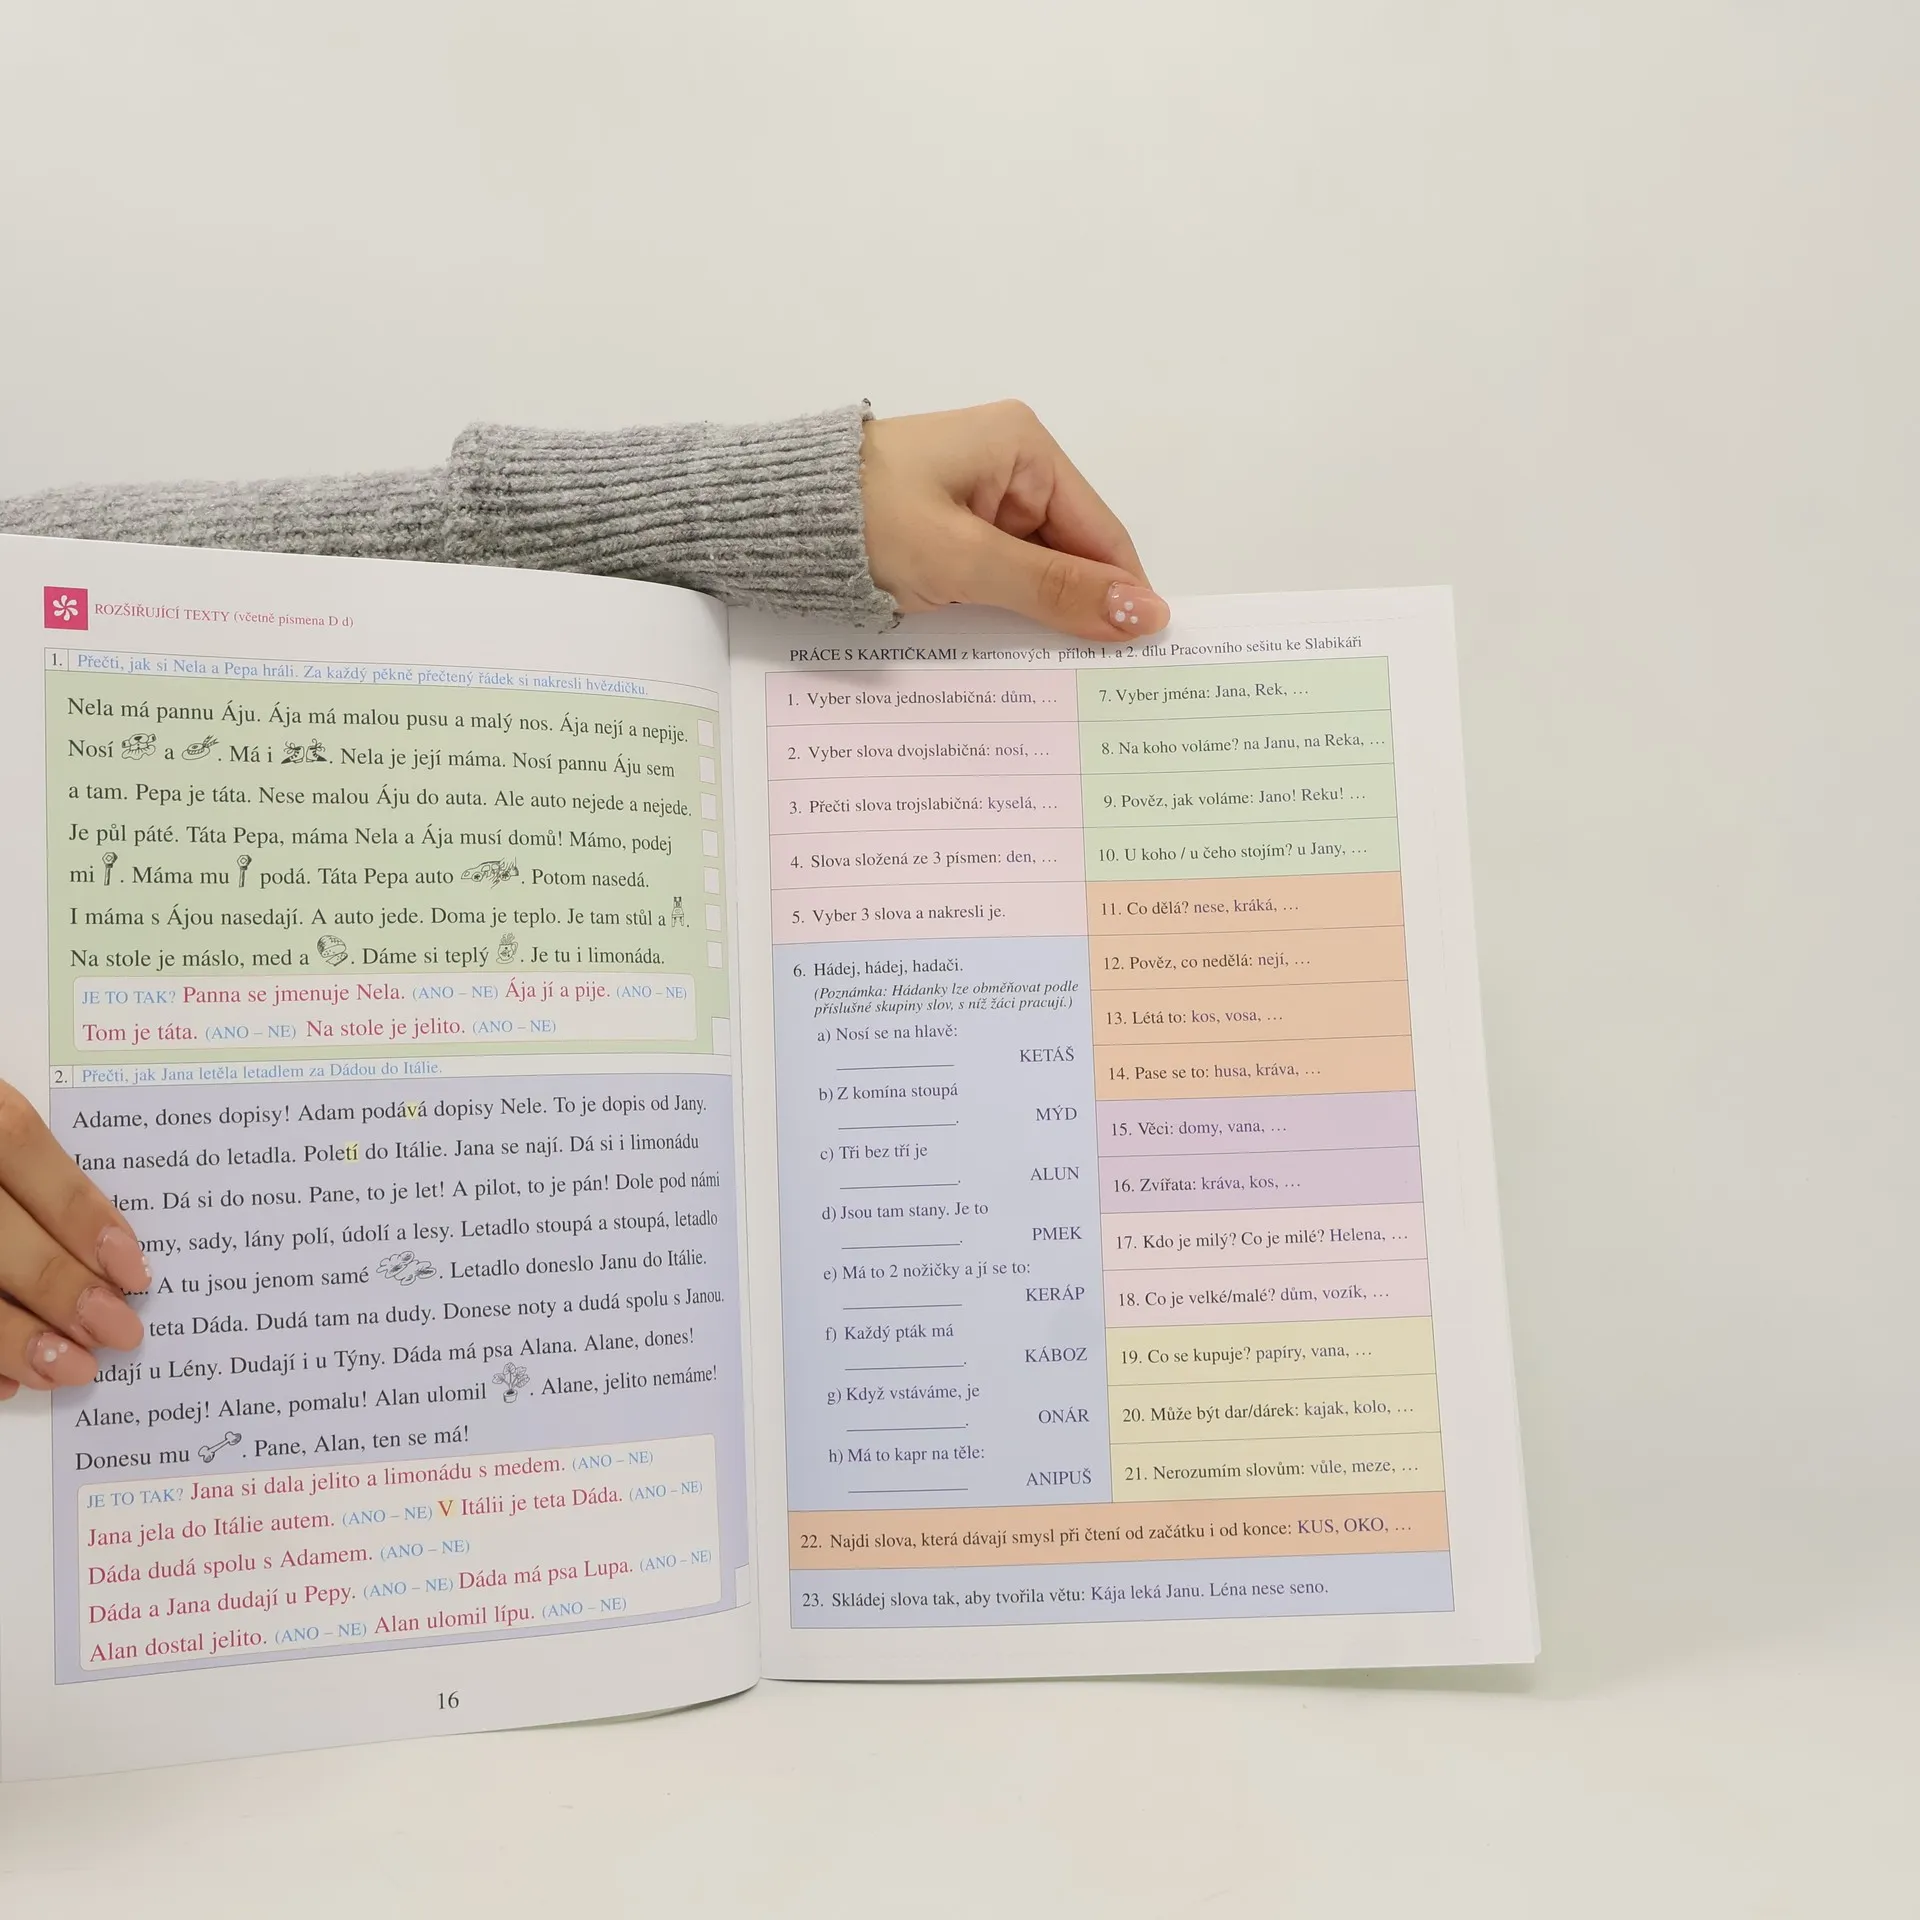 ROZŠIŘUJÍCÍ TEXTY (včetně písmena D d)
1. Přečti, jak si Nela a Pepa hráli. Za každý pěkně přečtený řádek si nakresli hvězdičku.
Nela má pannu Áju. Ája má malou pusu a malý nos. Ája nejí a nepije.
Nosí a . Má i . Nela je její máma. Nosí pannu Áju sem
a tam. Pepa je táta. Nese malou Áju do auta. Ale auto nejede a nejede.
Je půl páté. Táta Pepa, máma Nela a Ája musí domů! Mámo, podej
mi . Máma mu podá. Táta Pepa auto . Potom nasedá.
I máma s Ájou nasedají. A auto jede. Doma je teplo. Je tam stůl a .
Na stole je máslo, med a . Dáme si teplý . Je tu i limonáda.
JE TO TAK? Panna se jmenuje Nela. (ANO – NE) Ája jí a pije. (ANO – NE)
Tom je táta. (ANO – NE) Na stole je jelito. (ANO – NE)
2. Přečti, jak Jana letěla letadlem za Dádou do Itálie.
Adame, dones dopisy! Adam podává dopisy Nele. To je dopis od Jany.
Jana nasedá do letadla. Poletí do Itálie. Jana se nají. Dá si i limonádu
dem. Dá si do nosu. Pane, to je let! A pilot, to je pán! Dole pod námi
omy, sady, lány polí, údolí a lesy. Letadlo stoupá a stoupá, letadlo
A tu jsou jenom samé . Letadlo doneslo Janu do Itálie.
teta Dáda. Dudá tam na dudy. Donese noty a dudá spolu s Janou.
udají u Lény. Dudají i u Týny. Dáda má psa Alana. Alane, dones!
Alane, podej! Alane, pomalu! Alan ulomil . Alane, jelito nemáme!
Donesu mu . Pane, Alan, ten se má!
JE TO TAK? Jana si dala jelito a limonádu s medem. (ANO – NE)
Jana jela do Itálie autem. (ANO – NE) V Itálii je teta Dáda. (ANO – NE)
Dáda dudá spolu s Adamem. (ANO – NE)
Dáda a Jana dudají u Pepy. (ANO – NE) Dáda má psa Lupa. (ANO – NE)
Alan dostal jelito. (ANO – NE) Alan ulomil lípu. (ANO – NE)
16
PRÁCE S KARTIČKAMI z kartonových příloh 1. a 2. dílu Pracovního sešitu ke Slabikáři
1. Vyber slova jednoslabičná: dům, …
2. Vyber slova dvojslabičná: nosí, …
3. Přečti slova trojslabičná: kyselá, …
4. Slova složená ze 3 písmen: den, …
5. Vyber 3 slova a nakresli je.
6. Hádej, hádej, hadači.
(Poznámka: Hádanky lze obměňovat podle
příslušné skupiny slov, s níž žáci pracují.)
a) Nosí se na hlavě:
KETÁŠ
b) Z komína stoupá
MÝD
c) Tři bez tří je
ALUN
d) Jsou tam stany. Je to
PMEK
e) Má to 2 nožičky a jí se to:
KERÁP
f) Každý pták má
KÁBOZ
g) Když vstáváme, je
ONÁR
h) Má to kapr na těle:
ANIPUŠ
7. Vyber jména: Jana, Rek, …
8. Na koho voláme? na Janu, na Reka, …
9. Pověz, jak voláme: Jano! Reku! …
10. U koho / u čeho stojím? u Jany, …
11. Co dělá? nese, kráká, …
12. Pověz, co nedělá: nejí, …
13. Létá to: kos, vosa, …
14. Pase se to: husa, kráva, …
15. Věci: domy, vana, …
16. Zvířata: kráva, kos, …
17. Kdo je milý? Co je milé? Helena, …
18. Co je velké/malé? dům, vozík, …
19. Co se kupuje? papíry, vana, …
20. Může být dar/dárek: kajak, kolo, …
21. Nerozumím slovům: vůle, meze, …
22. Najdi slova, která dávají smysl při čtení od začátku i od konce: KUS, OKO, …
23. Skládej slova tak, aby tvořila větu: Kája leká Janu. Léna nese seno.